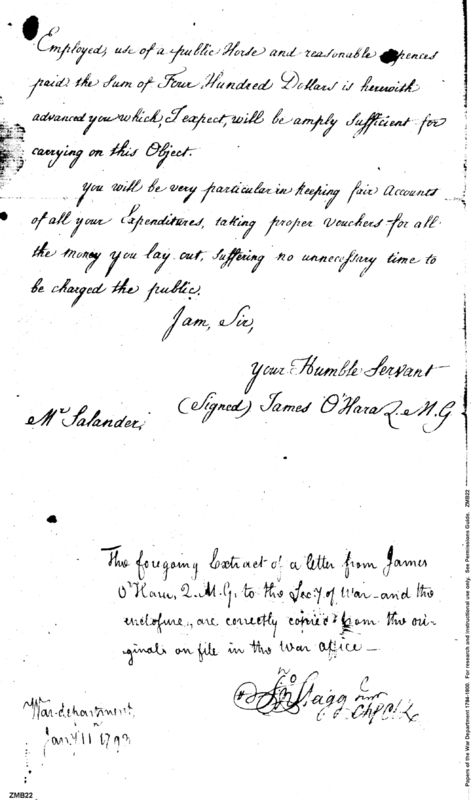 Employed, use of a public Horse and reasonable expences
paid. the Sum of Four Hundred Dollars is herewith
advanced you which, I expect, will be amply sufficient for
carrying on this Object.
You will be very particular in keeping fair Accounts
of all your Expenditures, taking proper vouchers for all
the money you lay out, suffering no unnecessary time to
be charged the public.
I am, Sir,
your Humble Servant
(Signed) James O'Hara Q.M.G
Mr Salander,
The foregoing Extract of a letter from James
O'Hara, Q.M.G. to the Secy of War and the
enclosure, are correctly copied from the ori-
ginals on file in the War office
Jno Stagg Junr
Chf Clk
War-department,
Jany 11 1793
Papers of the War Department 1784-1800. For research and instructional use only. See Permissions Guide. ZMB22
ZMB22